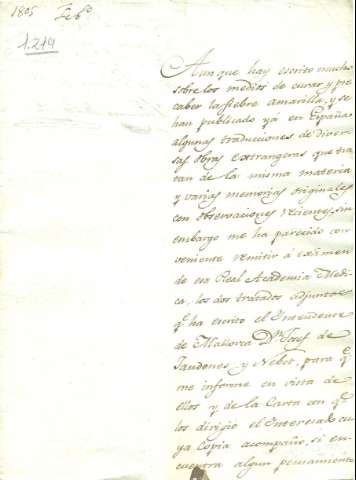 1805 Feb.º
1.214
Aunque hay escrito mucho
sobre los medios de curar y pre
caber la fiebre amarilla, y se
han publicado yá en España
algunas traducciones de diver
sas obras extrangeras que tra
tan de la misma materia
y varias memorias originales
con observaciones recientes, sin
embargo me ha parecido con
veniente remitir á exámen
de esa Real Academia Medi
ca, los dos tratados adjuntos
q.e ha escrito el Intendente
de Mallorca D.n Josef de
Jaudenes y Nebot, para q.e
me informe en vista de
ellos y de la Carta con q.e
los dirigio el Interesado cu
ya Copia acompaño, si en
cuentra algun pensamiento